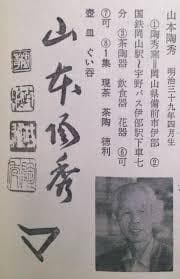 山本陶秀 明治三十九年四月生
①陶秀窯＝岡山県備前市伊部 ②
国鉄岡山駅〜宇野バス伊部駅下車七
分 ③茶陶器 飲食器 花器 ⑥可
⑦可 ⑧1集 現茶 茶陶 徳利
壺 皿 ぐい呑
山本陶秀